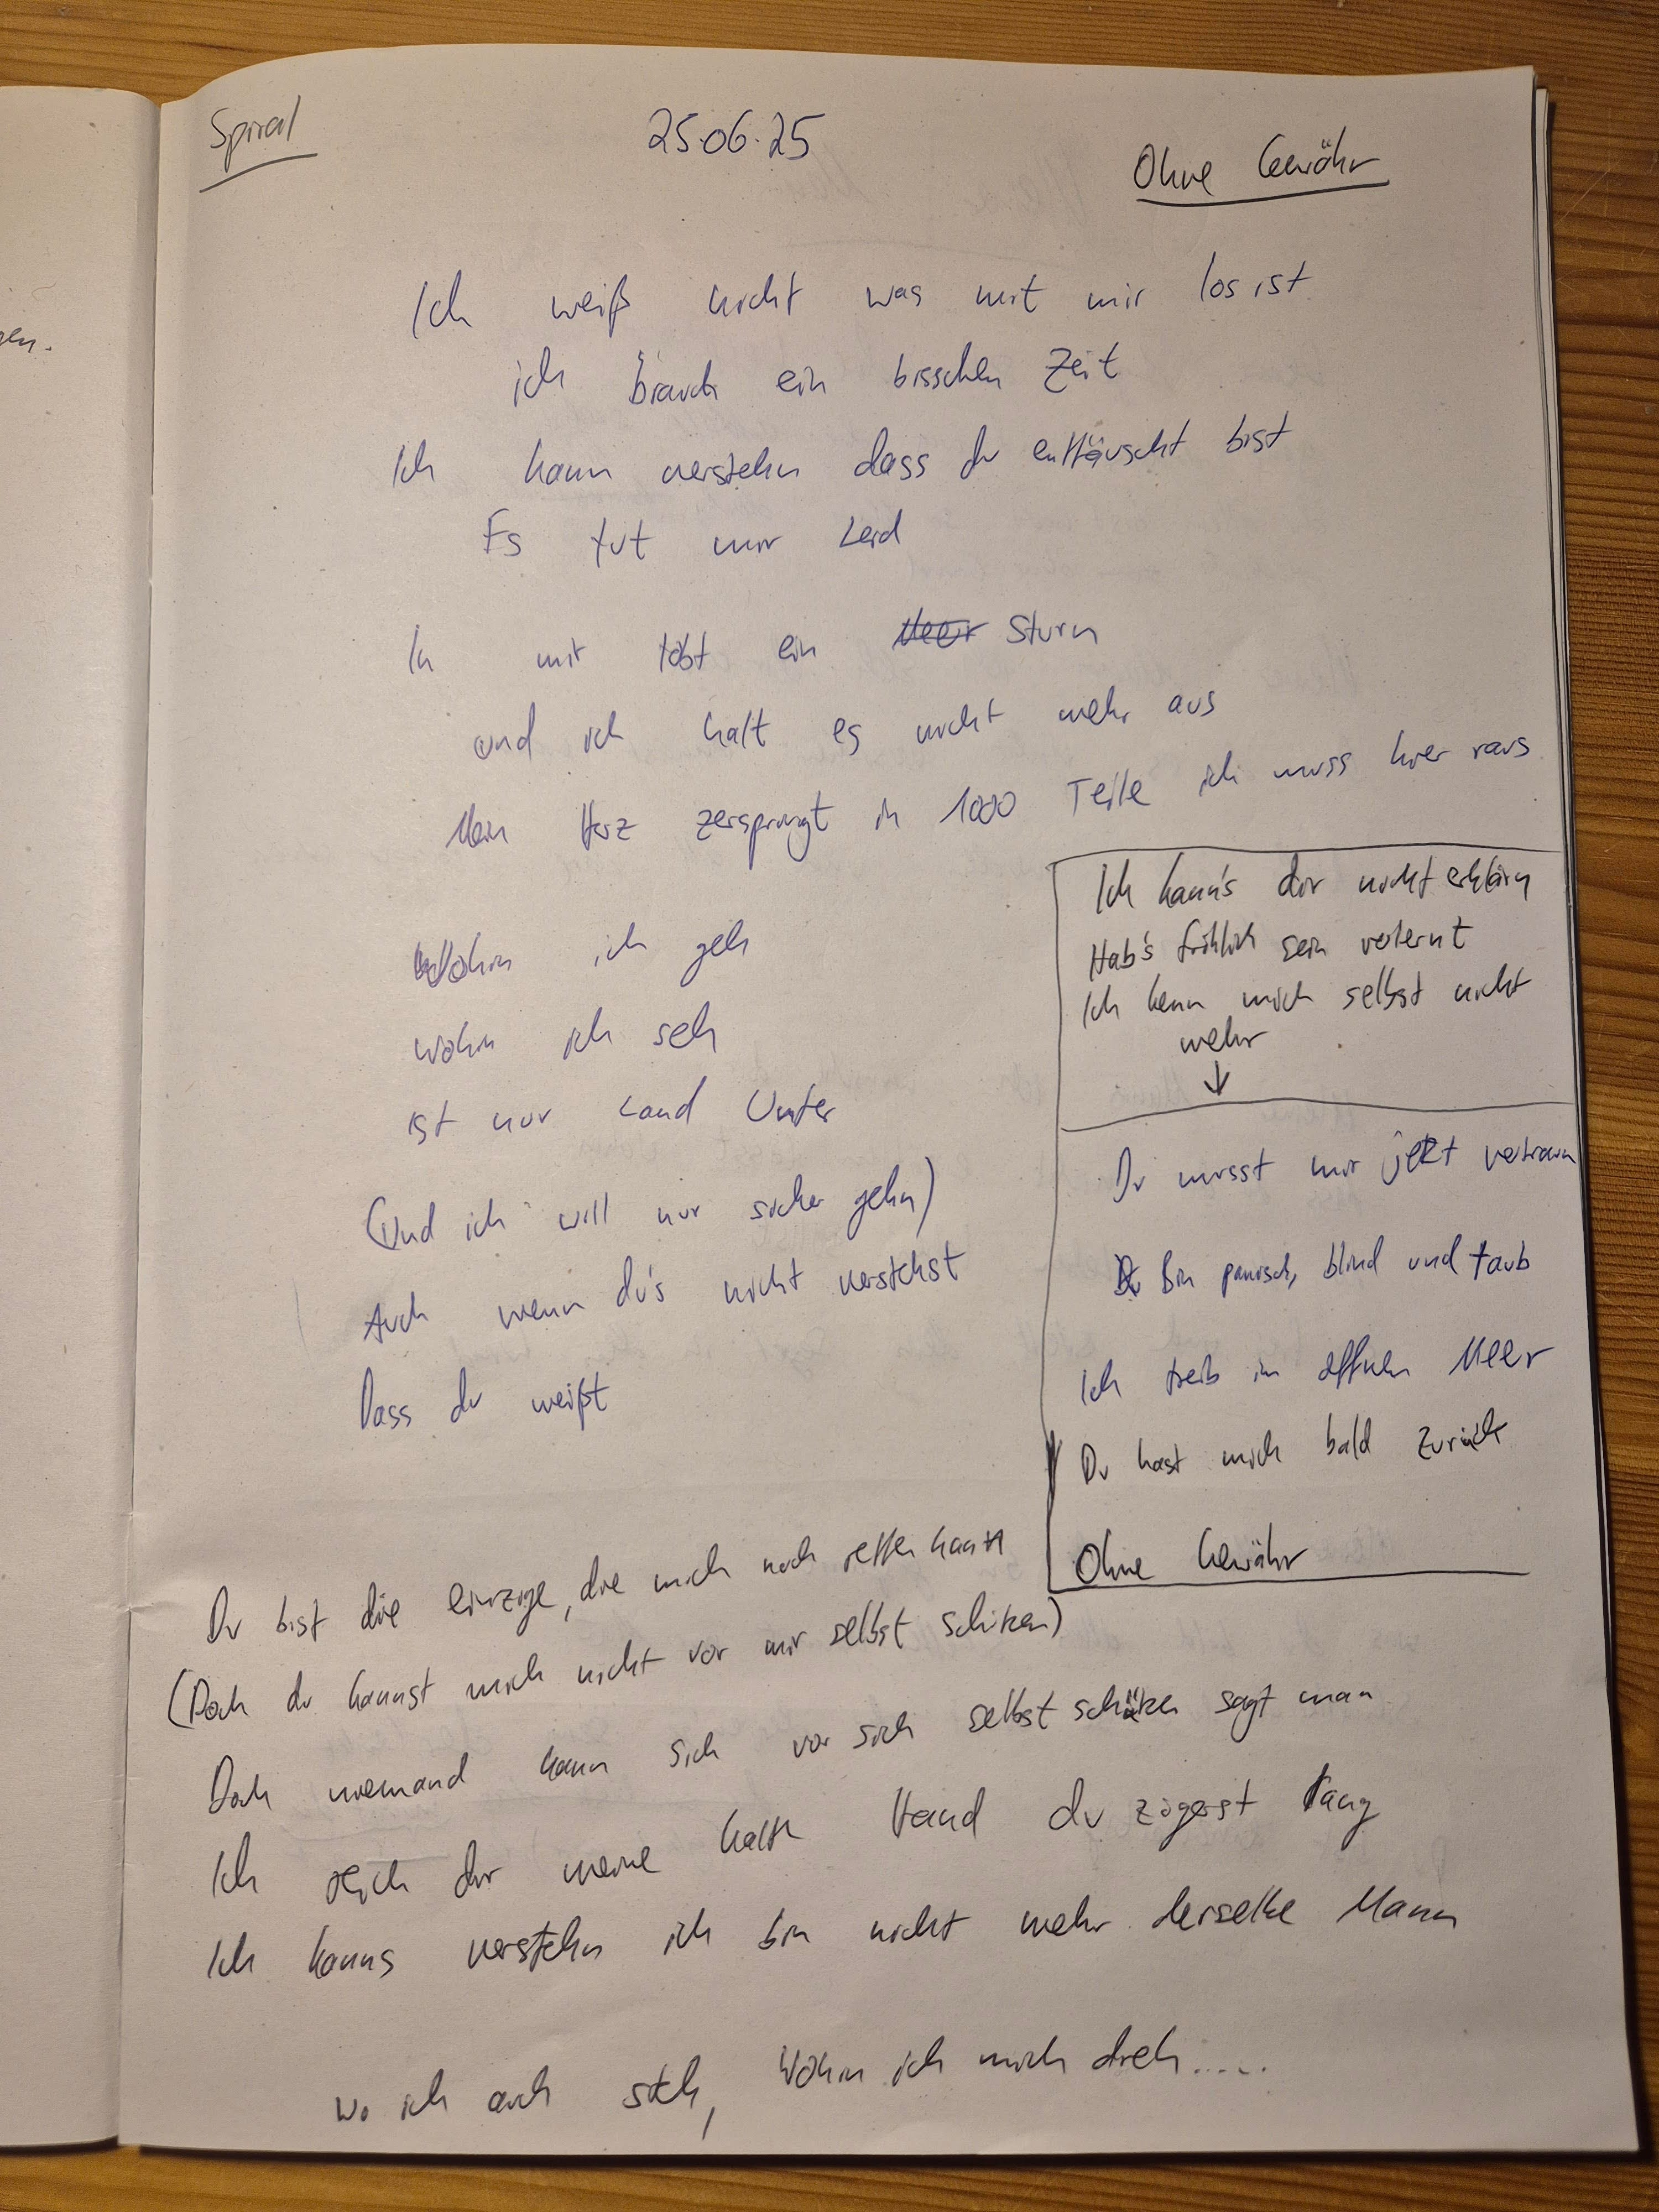 gen.
Spiral
25.06.25
Ohne Gewähr
Ich weiß nicht was mit mir los ist
ich brauch ein bisschen Zeit
Ich kann verstehn dass du enttäuscht bist
Es tut mir Leid
In mir tobt ein Meer Sturm
und ich halt es nicht mehr aus
Mein Herz zerspringt in 1000 Teile ich muss hier raus
Wohin ich geh
wohin ich seh
ist nur Land Unter
(Und ich will nur sicher gehn)
Auch wenn du's nicht verstehst
Dass du weißt
Ich kann's dir nicht erklärn
Hab's fröhlich sein verlernt
Ich kenn mich selbst nicht
mehr
↓
Du musst mir jetzt vertraun
Bin panisch, blind und taub
Ich treib im offnen Meer
Du hast mich bald zurück
Ohne Gewähr
Du bist die einzige, die mich noch retten kann
(Doch du kannst mich nicht vor mir selbst schützen)
Doch niemand kann sich vor sich selbst schützen sagt man
Ich reich dir meine kalte Hand du zögerst lang
Ich kanns verstehn ich bin nicht mehr derselbe Mann
Wo ich auch steh, Wohin ich mich dreh.....